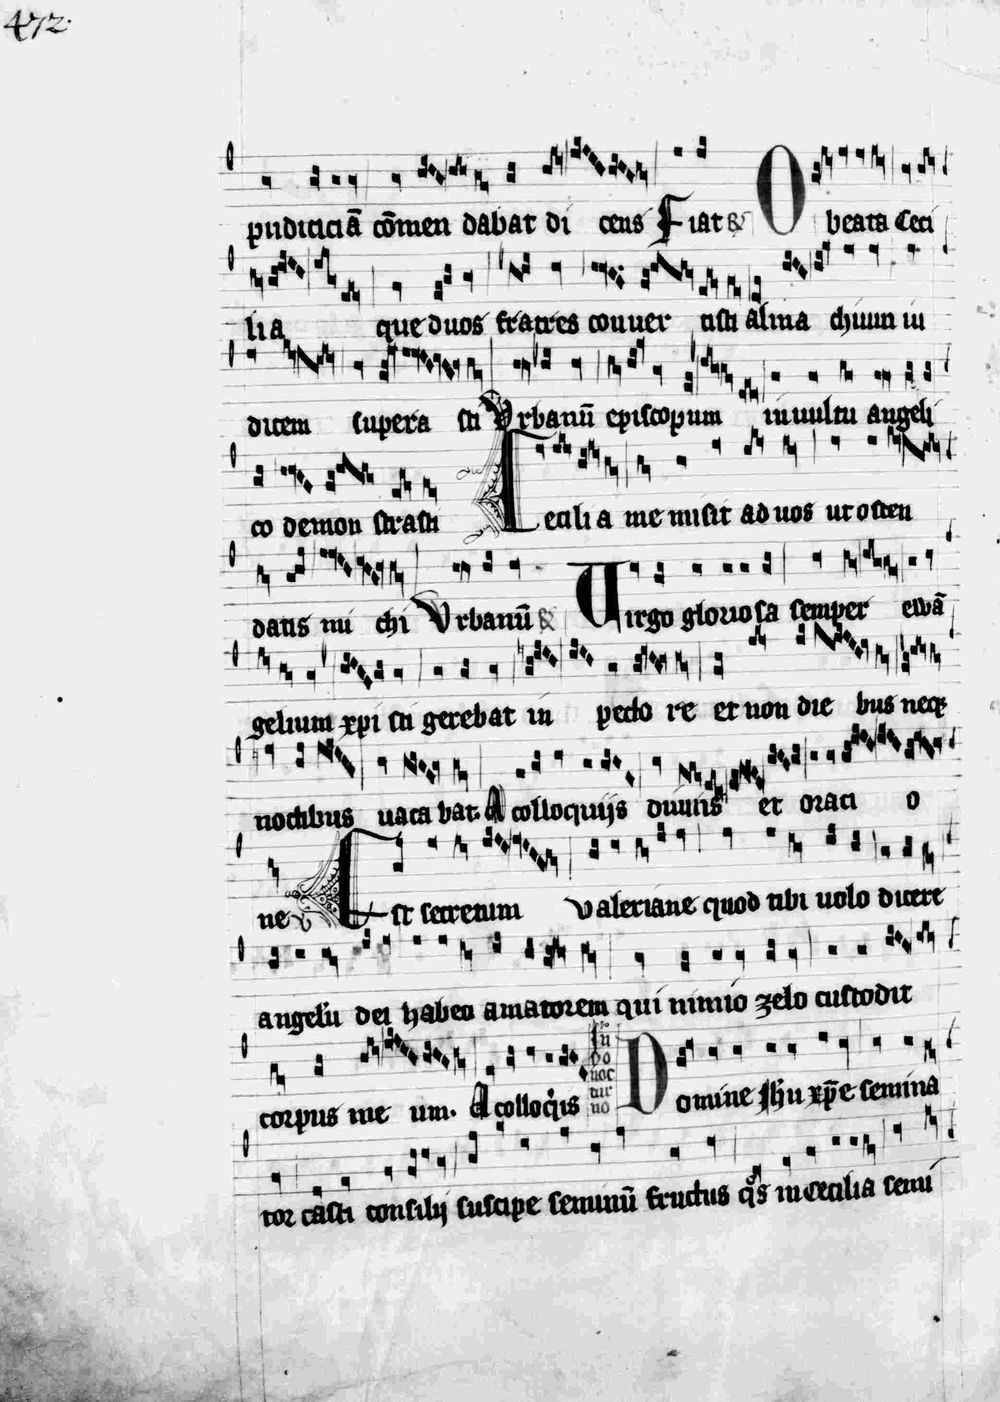 472.
pudiciciā cōmen dabat di cens Fiat & O beata Ceci
lia que duos fratres conuer tisti alma chium iu
dicem supera sti Vrbanū episcopum in uultu angeli
co demon strasti Cecilia me misit ad uos ut osten
datis mi chi Vrbanū & Virgo gloriosa semper ewā
gelium xpi sti gerebat in pecto re et non die bus neq;
noctibus uaca bat. A colloquijs diuinis et oraci o
ne Est secretum Valeriane quod tibi uolo dicere
angelū dei habeo amatorem qui nimio zelo custodit
corpus me um. A colloqͥis In pͦo noc tur no Domine Jhu xp̄e semina
tor casti consilij suscipe seminū fructus qͦs in Cecilia semi